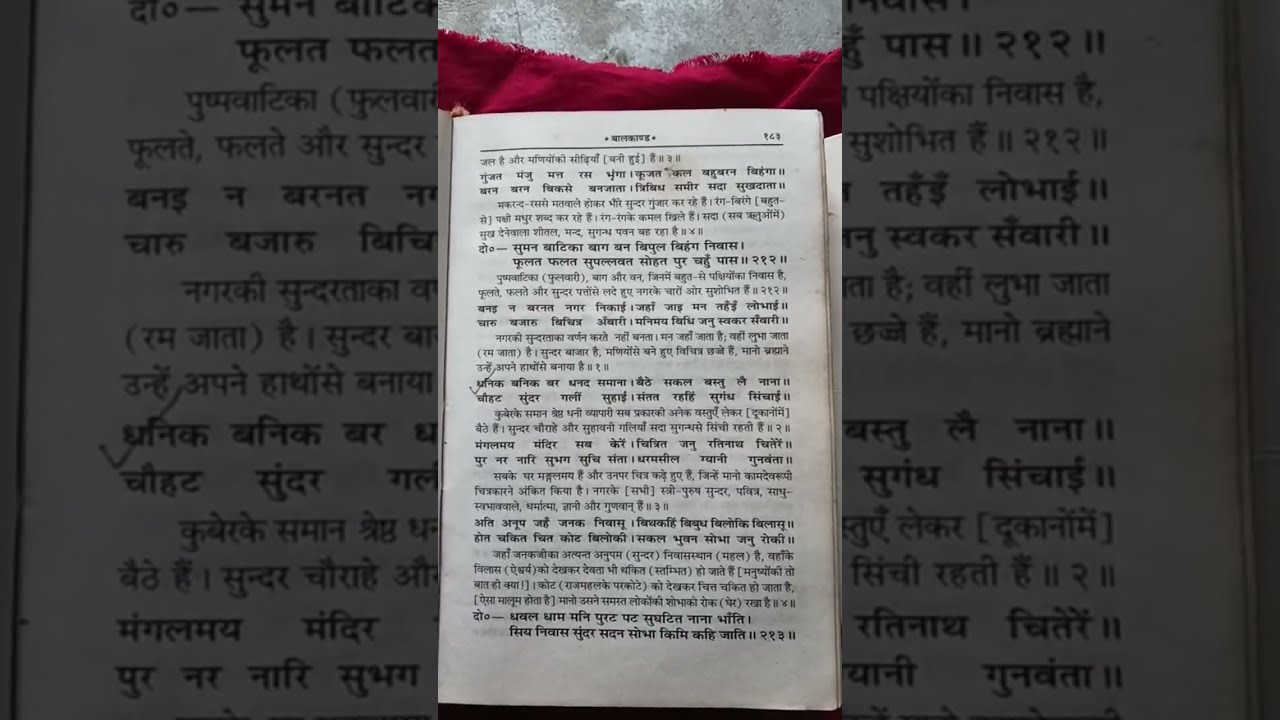 * बालकाण्ड *
१८३
जल है और मणियोंकी सीढ़ियाँ [बनी हुई] हैं॥३॥
गुंजत मंजु मत्त रस भृंगा। कूजत कल बहुबरन बिहंगा॥
बरन बरन बिकसे बनजाता। त्रिबिध समीर सदा सुखदाता॥
मकरन्द-रससे मतवाले होकर भौंरे सुन्दर गुंजार कर रहे हैं। रंग-बिरंगे [बहुत-
से] पक्षी मधुर शब्द कर रहे हैं। रंग-रंगके कमल खिले हैं। सदा (सब ऋतुओंमें)
सुख देनेवाला शीतल, मन्द, सुगन्ध पवन बह रहा है॥४॥
दो०— सुमन बाटिका बाग बन बिपुल बिहंग निवास।
फूलत फलत सुपल्लवत सोहत पुर चहुँ पास॥२१२॥
पुष्पवाटिका (फुलवारी), बाग और वन, जिनमें बहुत-से पक्षियोंका निवास है,
फूलते, फलते और सुन्दर पत्तोंसे लदे हुए नगरके चारों ओर सुशोभित हैं॥२१२॥
बनइ न बरनत नगर निकाई। जहाँ जाइ मन तहँइँ लोभाई॥
चारु बजारु बिचित्र अँबारी। मनिमय बिधि जनु स्वकर सँवारी॥
नगरकी सुन्दरताका वर्णन करते नहीं बनता। मन जहाँ जाता है; वहीं लुभा जाता
(रम जाता) है। सुन्दर बाजार है, मणियोंसे बने हुए विचित्र छज्जे हैं, मानो ब्रह्माने
उन्हें अपने हाथोंसे बनाया है॥१॥
धनिक बनिक बर धनद समाना। बैठे सकल बस्तु लै नाना॥
चौहट सुंदर गलीं सुहाई। संतत रहहिं सुगंध सिंचाई॥
कुबेरके समान श्रेष्ठ धनी व्यापारी सब प्रकारकी अनेक वस्तुएँ लेकर [दूकानोंमें]
बैठे हैं। सुन्दर चौराहे और सुहावनी गलियाँ सदा सुगन्धसे सिंची रहती हैं॥२॥
मंगलमय मंदिर सब केरें। चित्रित जनु रतिनाथ चितेरें॥
पुर नर नारि सुभग सुचि संता। धरमसील ग्यानी गुनवंता॥
सबके घर मङ्गलमय हैं और उनपर चित्र कढ़े हुए हैं, जिन्हें मानो कामदेवरूपी
चित्रकारने अंकित किया है। नगरके [सभी] स्त्री-पुरुष सुन्दर, पवित्र, साधु-
स्वभाववाले, धर्मात्मा, ज्ञानी और गुणवान् हैं॥३॥
अति अनूप जहँ जनक निवासू। बिथकहिं बिबुध बिलोकि बिलासू॥
होत चकित चित कोट बिलोकी। सकल भुवन सोभा जनु रोकी॥
जहाँ जनकजीका अत्यन्त अनुपम (सुन्दर) निवासस्थान (महल) है, वहाँके
विलास (ऐश्वर्य)को देखकर देवता भी थकित (स्तम्भित) हो जाते हैं [मनुष्योंकी तो
बात ही क्या!]। कोट (राजमहलके परकोटे) को देखकर चित्त चकित हो जाता है,
[ऐसा मालूम होता है] मानो उसने समस्त लोकोंकी शोभाको रोक (घेर) रखा है॥४॥
दो०— धवल धाम मनि पुरट पट सुघटित नाना भाँति।
सिय निवास सुंदर सदन सोभा किमि कहि जाति॥२१३॥